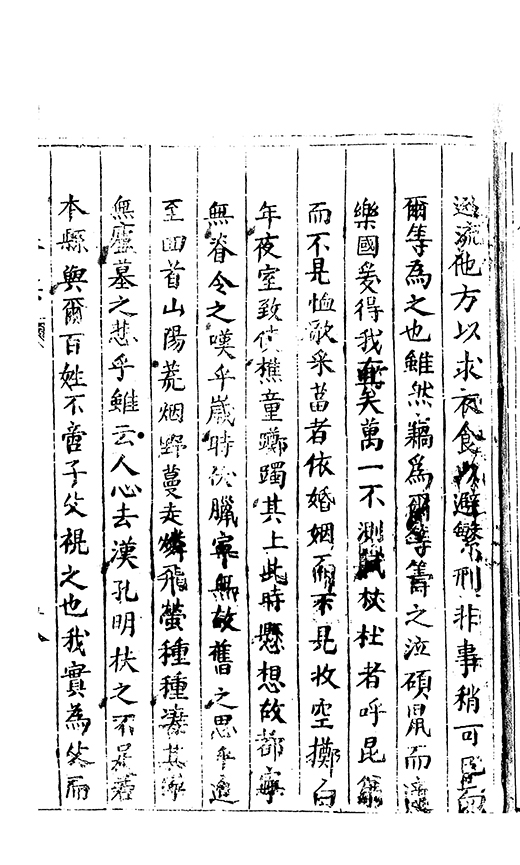 逃流他方以求衣食以避繁刑非事稍可已白
爾等為之也雖然竊為爾等籌之泣碩鼠而適
樂國爰得我直矣萬一不測賦杕杜者呼昆弟
而不見恤歌采葍者依婚姻而不見收空擲白
年夜室致使樵童躑躅其上此時懸想故都寧
無脊令之嘆乎歲時伏臘寧無故舊之思乎適
至回首山陽荒烟野蔓走燐飛螢種種淒其寧
無廬墓之悲乎雖云人心去漢孔明扶之不足若
本縣與爾百姓不啻子父視之也我實為父而